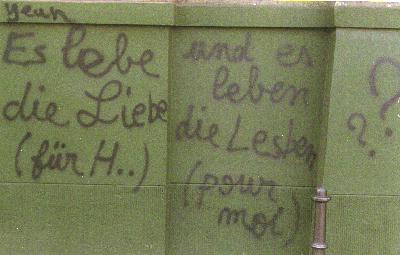 yeah
Es lebe
die Liebe
(für H..)
und es
leben
die Lesben
(pour
moi)
??